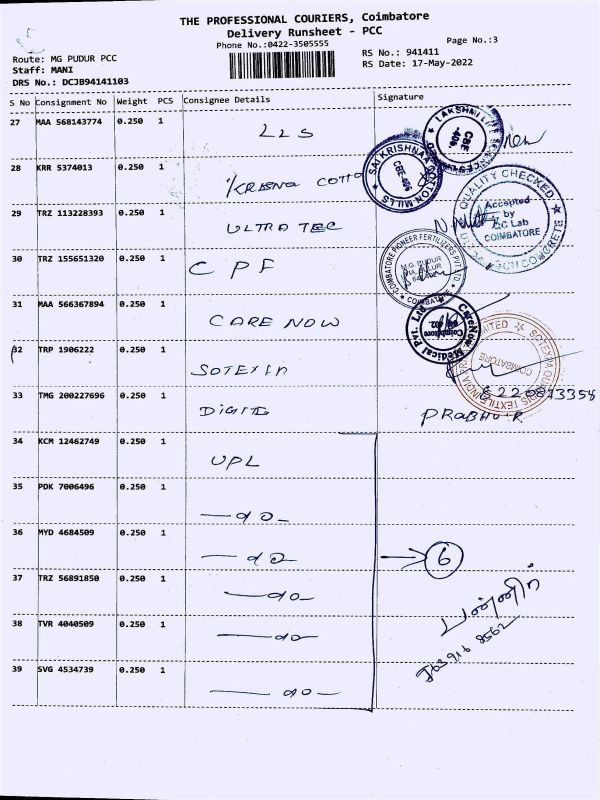 THE PROFESSIONAL COURIERS, Coimbatore
Delivery Runsheet - PCC
Phone No.:0422-3505555
Page No.:3
Route: MG PUDUR PCC
RS No.: 941411
Staff: MANI
RS Date: 17-May-2022
DRS No.: DCJB94141103
S No Consignment No Weight PCS Consignee Details Signature
27 MAA 568143774 0.250 1 LLS
LAKSHMI
CBE-
406.
28 KRR 5374013 0.250 1 KRASNA COTTO
SAI KRISHNAA COTTON MILLS
CBE-406
29 TRZ 113228393 0.250 1 ULTRA TEC
QUALITY CHECKED
Accepted
by
QC Lab
COIMBATORE
CONCRETE
30 TRZ 155651320 0.250 1 CPF
COIMBATORE PIONEER FERTILIZERS PVT LTD
M.G. PUDUR
COIMBATORE
31 MAA 566367894 0.250 1 CARE NOW
CareNow Medical Pvt. Ltd
Coimbatore
32 TRP 1906222 0.250 1 SOTEXIA
SOTEXIA
TEXTILE INDIA
LIMITED
COIMBATORE
33 TMG 200227696 0.250 1
PRABHU R
34 KCM 12462749 0.250 1 UPL
35 PDK 7006496 0.250 1 — do —
36 MYD 4684509 0.250 1 — do — → 6
37 TRZ 56891850 0.250 1 — do —
38 TVR 4040509 0.250 1 — do —
39 SVG 4534739 0.250 1 — do —